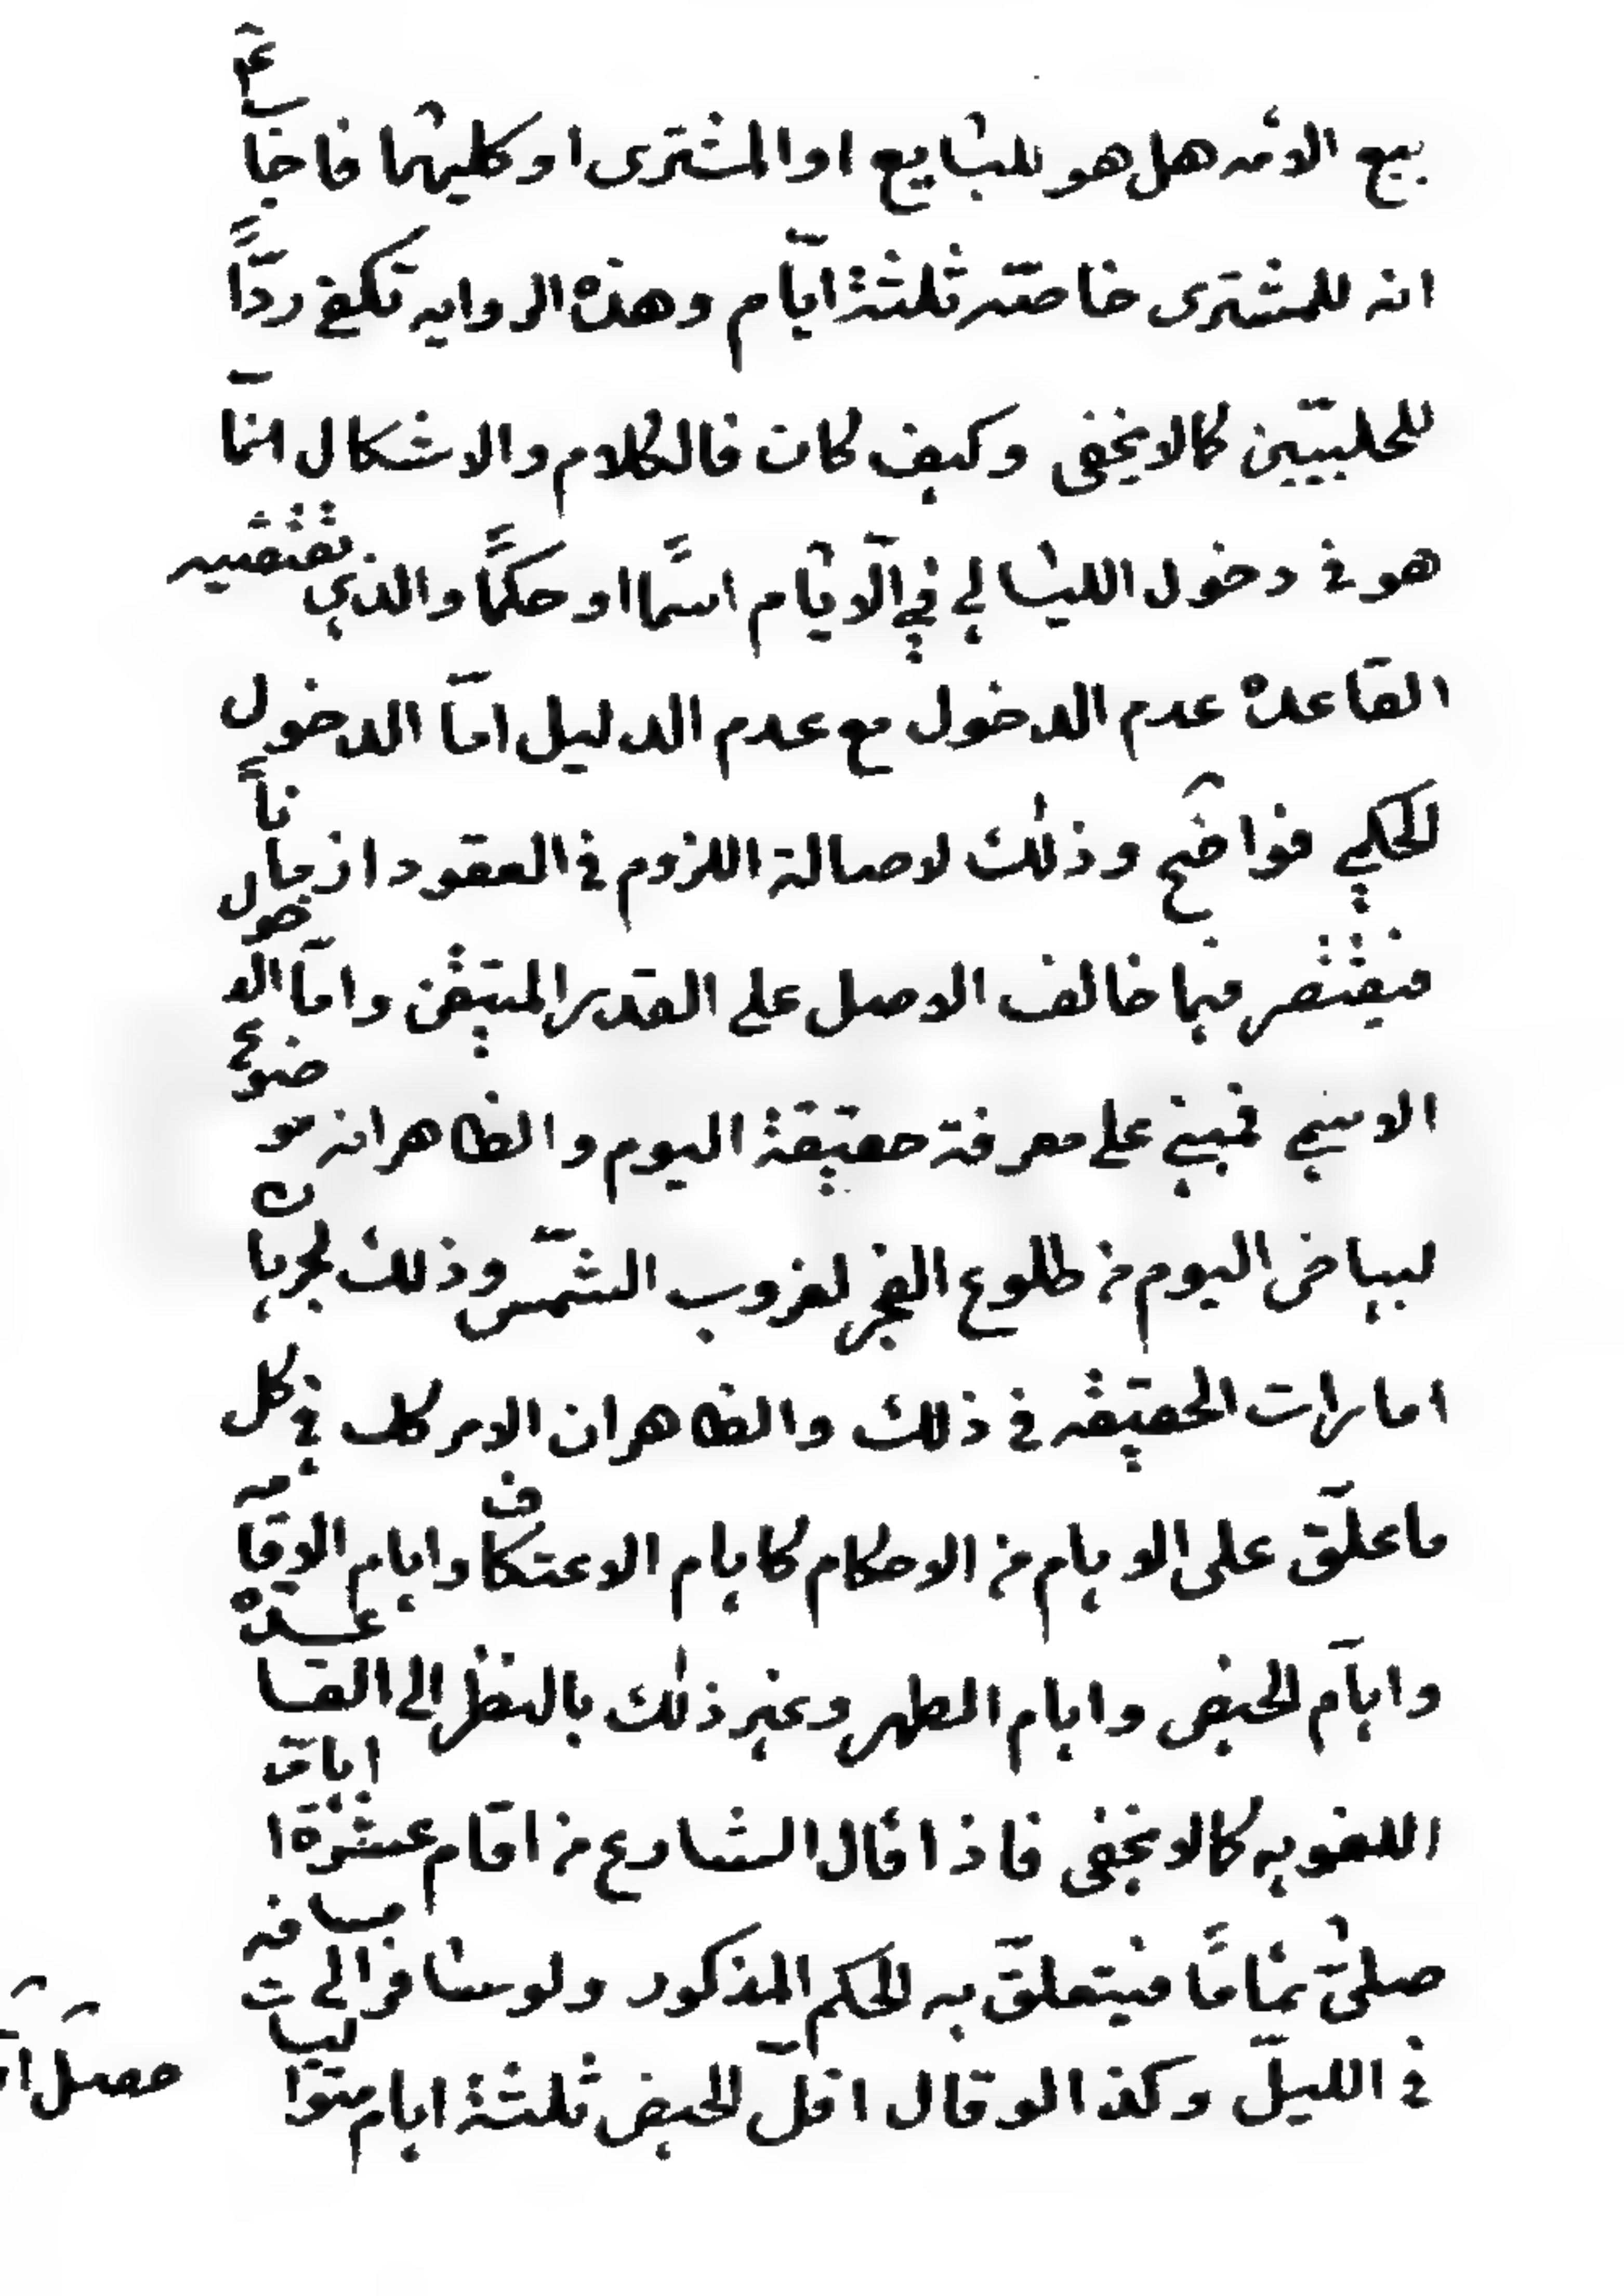 بيع الامه هل هو للبايع او المشترى او كليهما فاجا ع
انه للمشترى خاصته ثلثة ايّام وهذه الروايه تكفى ردّاً
للحلبيّين كما لا يخفى وكيف كان فالكلام والاشكال انّما
هو فى دخول الليالي في الايّام اسمًا او حكمًا والذي تقتضيه
القاعدة عدم الدخول مع عدم الدليل امّا الدخول
الحكمي فواضح وذلك لاصالة اللزوم فى العقود ازمانا
فيقتصر فيما خالف الاصل على القدر المتيقن وامّا الدخول
الاسمي فمبني على معرفة حقيقة اليوم والظاهر انه موضوع
لبياض اليوم من طلوع الفجر لغروب الشمس وذلك لجريان
امارات الحقيقه فى ذلك والظاهر ان الامر كك في كل
ما علّق على الايام من الاحكام كايام الاعتكاف وايام الاقامه
وايّام الحيض وايام الطهر وغير ذلك بالنظر الى القاعدة
اللغويه كما لا يخفى فاذا قال الشارع من اقام عشرة ايام
صلى تمامًا فيتعلّق به الحكم المذكور ولو سافر الى مسافه
فى الليل وكذا لو قال اقلّ الحيض ثلثة ايام متواليات